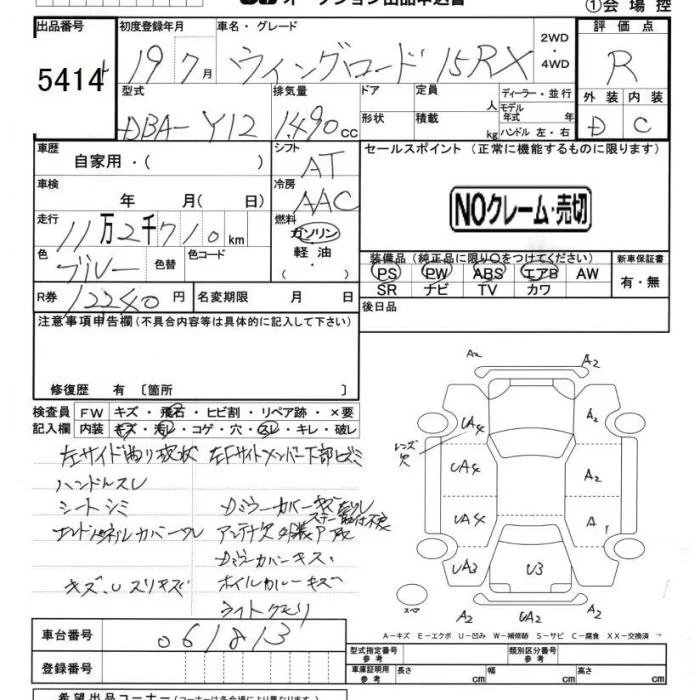 オークション出品申込書
①会場控
出品番号 初度登録年月 車名・グレード 2WD・4WD 評価点
5414 19 7月 ウイングロード 15RX R
型式 排気量 ドア 定員 人 ディーラー・並行 外装 内装
DBA-Y12 1490cc 形状 積載 kg モデル年式 年 ハンドル 左・右 D C
車歴 自家用・( ) シフト AT セールスポイント(正常に機能するものに限ります)
車検 年 月(日) 冷房 AAC
NOクレーム・売切
走行 11万2千710km 燃料 ガソリン 軽油・( )
色 ブルー 色替 色コード
装備品(純正品に限り○をつけてください) 新車保証書
PS PW ABS エアB AW 有・無
SR ナビ TV カワ
R券 12240円 名変期限 月 日
後日品
注意事項申告欄(不具合内容等は具体的に記入して下さい)
修復歴 有〔箇所 〕
検査員 FW キズ・飛石・ヒビ割・リペア跡・×要
記入欄 内装 キズ・汚レ・コゲ・穴・スレ・キレ・破レ
左サイド 左Fサイドメンバー下部ヒズミ
ハンドルスレ
シートシミ Dミラーカバーキズ
アンテナ欠
Dミラーカバーキズ
キズ、Uスリキズ ホイルカバーキズ
ライトクモリ
A2 A2
UA4 A2
レンズ欠
UA4 A2
UA4 A1
UA3 U3 A2
スペア A2 UA2 A2
A-キズ E-エクボ U-凹み W-補修跡 S-サビ C-腐食 XX-交換済
車台番号 061813
型式指定番号 参考 類別区分番号 参考
登録番号
車庫証明用 参考 長さ cm 幅 cm 高さ cm
希望出品コーナー(コーナーは各会場により異なります)